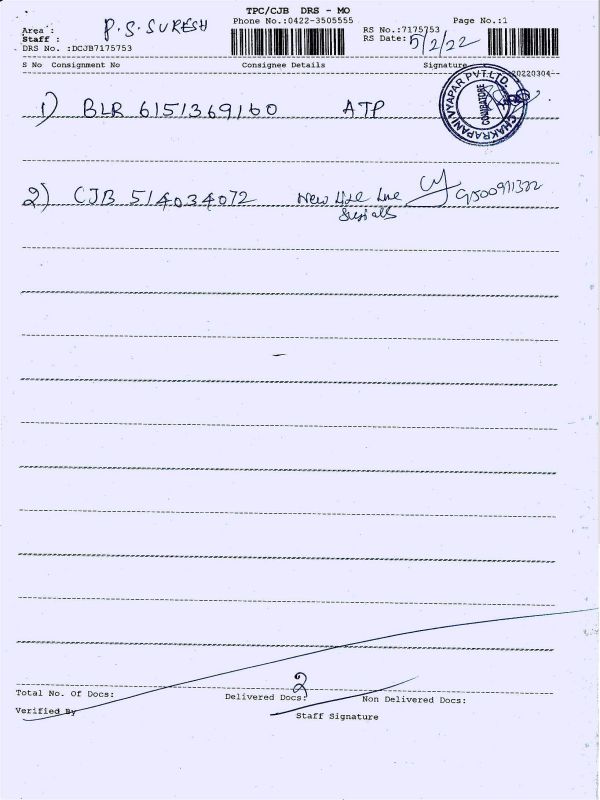 TPC/CJB DRS - MO
Phone No.:0422-3505555 Page No.:1
Area : P.S. SURESH
Staff :
RS No.:7175753
RS Date: 5/2/22
DRS No. :DCJB7175753
S No Consignment No Consignee Details Signature
20220304--
CHAKRAPANI VYAPAR PVT.LTD.
COIMBATORE
1) BLR 6151369160 ATP
2) CJB 514034072 New Life Line
Total No. Of Docs: Delivered Docs: 2 Non Delivered Docs:
Verified By
Staff Signature